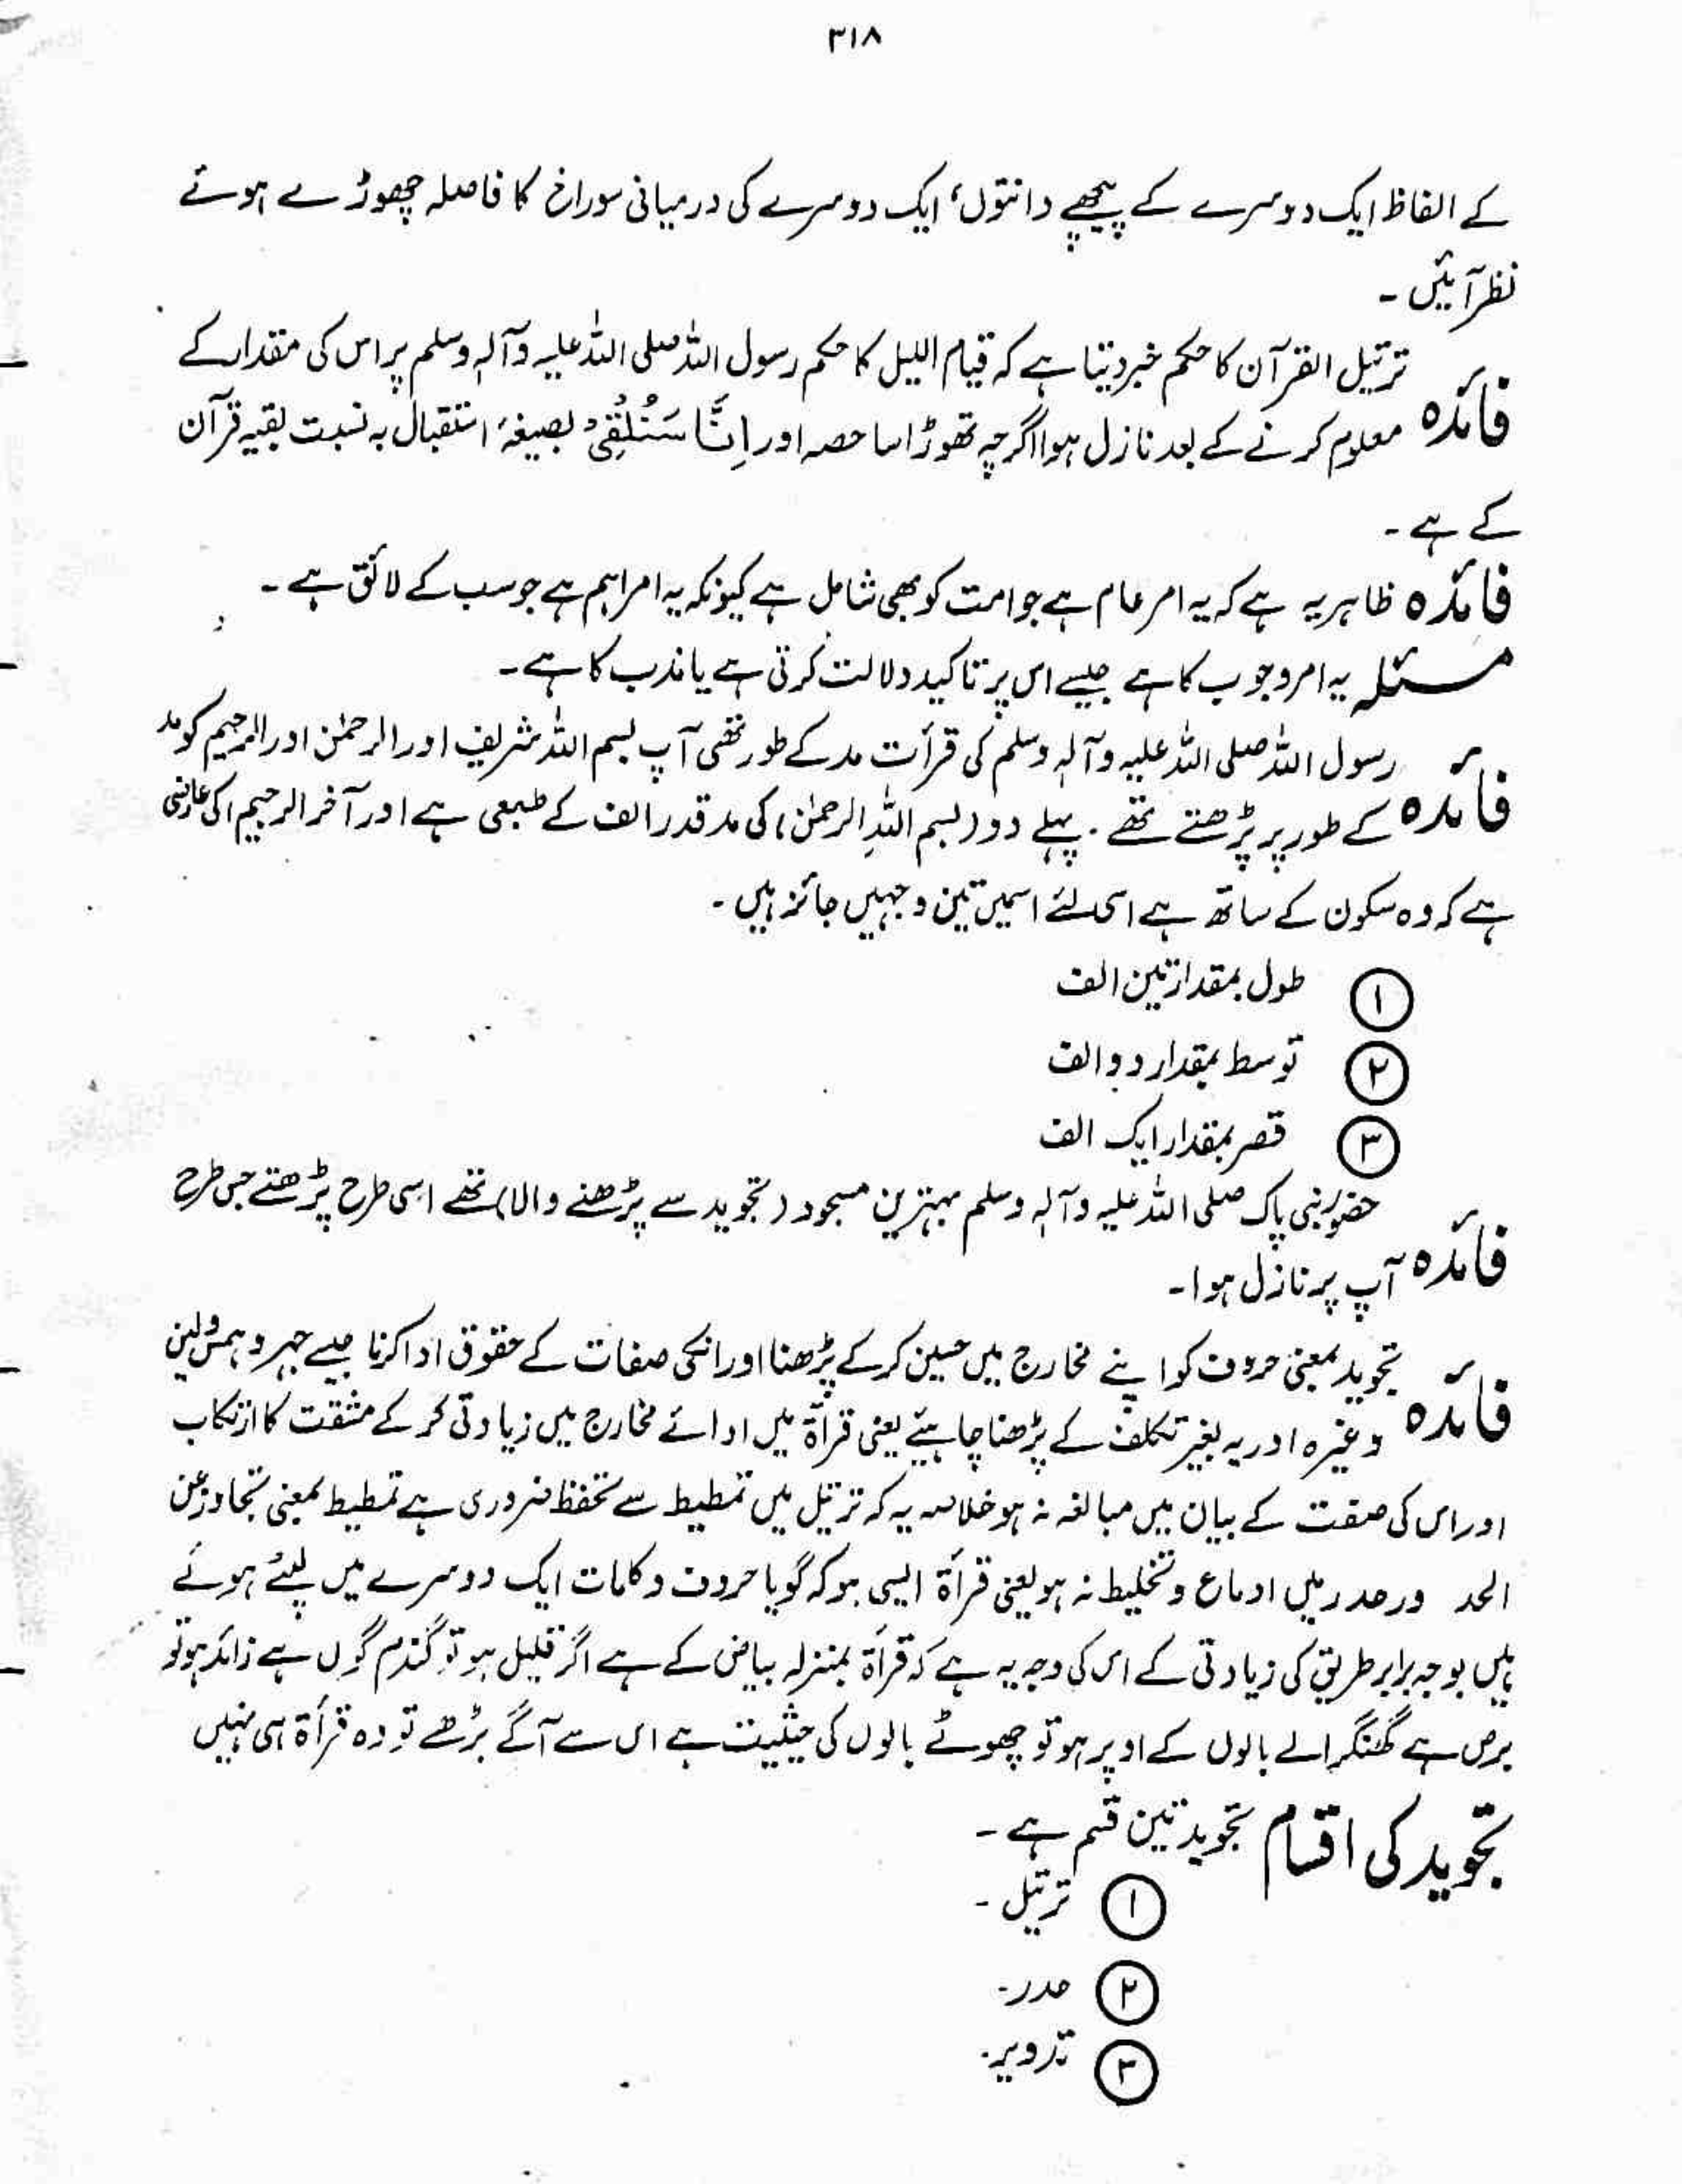 ۳۱۸
کے الفاظ ایک دوسرے کے پیچھے دانتوں، ایک دوسرے کی درمیانی سوراخ کا فاصلہ چھوڑے ہوئے
نظر آئیں ۔
فائدہ ترتیل القرآن کا حکم خبر دیتا ہے کہ قیام اللیل کا حکم رسول اللہ صلی اللہ علیہ وآلہ وسلم پر اس کی مقدار کے
معلوم کرنے کے بعد نازل ہوا اگرچہ تھوڑا سا حصہ اور اِنَّا سَنُلْقِیْ بصیغۂ استقبال بہ نسبت بقیہ قرآن
کے ہے ۔
فائدہ ظاہر یہ ہے کہ یہ امر عام ہے جو امت کو بھی شامل ہے کیونکہ یہ امر اہم ہے جو سب کے لائق ہے ۔
مسئلہ یہ امر وجوب کا ہے جیسے اس پر تاکید دلالت کرتی ہے یا ندب کا ہے ۔
فائدہ رسول اللہ صلی اللہ علیہ وآلہ وسلم کی قرأت مد کے طور تھی آپ بسم اللہ شریف اور الرحمٰن اور الرحیم کو مد
کے طور پر پڑھتے تھے . پہلے دو (بسم اللہِ الرحمٰن) کی مد قدر الف کے طبعی ہے اور آخر الرحیم کی عارضی
ہے کہ وہ سکون کے ساتھ ہے اسی لئے اسمیں تین وجہیں جائز ہیں ۔
۱ طول بمقدار تین الف
۲ توسط بمقدار دو الف
۳ قصر بمقدار ایک الف
فائدہ حضور نبی پاک صلی اللہ علیہ وآلہ وسلم بہترین مسجود (تجوید سے پڑھنے والا) تھے اسی طرح پڑھتے جس طرح
آپ پر نازل ہوا ۔
فائدہ تجوید بمعنی حروف کو اپنے مخارج میں حسین کر کے پڑھنا اور انکی صفات کے حقوق ادا کرنا جیسے جہر و ہمس ولین
وغیرہ اور یہ بغیر تکلف کے پڑھنا چاہیئے یعنی قرأۃ میں ادائے مخارج میں زیادتی کر کے مشقت کا ارتکاب
اور اس کی صفت کے بیان میں مبالغہ نہ ہو خلاصہ یہ کہ ترتیل میں تمطیط سے تحفظ ضروری ہے تمطیط بمعنی تجاوز عن
الحد ور حدر میں ادماع و تخلیط نہ ہو یعنی قرأۃ ایسی ہو کہ گویا حروف و کلمات ایک دوسرے میں لپٹے ہوئے
ہیں بوجہ برابر طریق کی زیادتی کے اس کی وجہ یہ ہے کہ قرأۃ بمنزلہ بیاض کے ہے اگر قلیل ہو تو گندم گوں ہے زائد ہو تو
برص ہے گھنگرالے بالوں کے اوپر ہو تو چھوٹے بالوں کی حیثیت ہے اس سے آگے بڑھے تو وہ قرأۃ ہی نہیں
تجوید کی اقسام تجوید تین قسم ہے ۔
۱ ترتیل ۔
۲ حدر ۔
۳ تدویر .